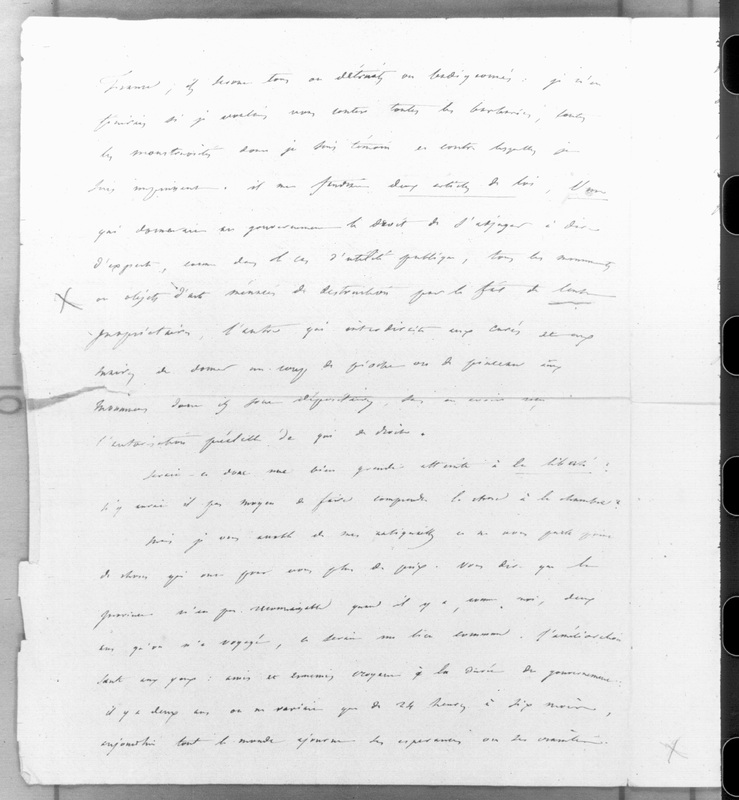 France, ils seront tous ou détruits ou badigeonnés : je n'en
finirais si je voulais vous conter toutes les barbaries, toutes
les monstruosités dont je suis témoin et contre lesquelles je
suis impuissant. il me faudrait deux articles de loi, l'un
qui donnerait au gouvernement le droit de s'adjuger à dire
d'experts, comme dans le cas d'utilité publique, tous les monuments
ou objets d'art menacés de destruction par le fait de leur
propriétaire, l'autre qui interdirait aux curés et aux
maires de donner un coup de pioche ou de pinceau aux
monuments dont ils sont dépositaires, sans en avoir reçu
l'autorisation préalable de qui de droit.
Serait-ce donc une bien grande atteinte à la liberté ?
n'y aurait il pas moyen de faire comprendre la chose à la chambre ?
Mais je vous accable de mes antiquailles et ne vous parle point
de choses qui ont pour vous plus de prix. Vous dire que la
province n'est pas reconnaissable quand il y a, comme moi, deux
ans qu'on n'a voyagé, ce serait un lieu commun. l'amélioration
saute aux yeux : amis et ennemis croyent à la durée du gouvernement.
il y a deux ans on ne variait que de 24 heures à six mois,
aujourd'hui tout le monde ajourne ses espérances ou ses craintes.